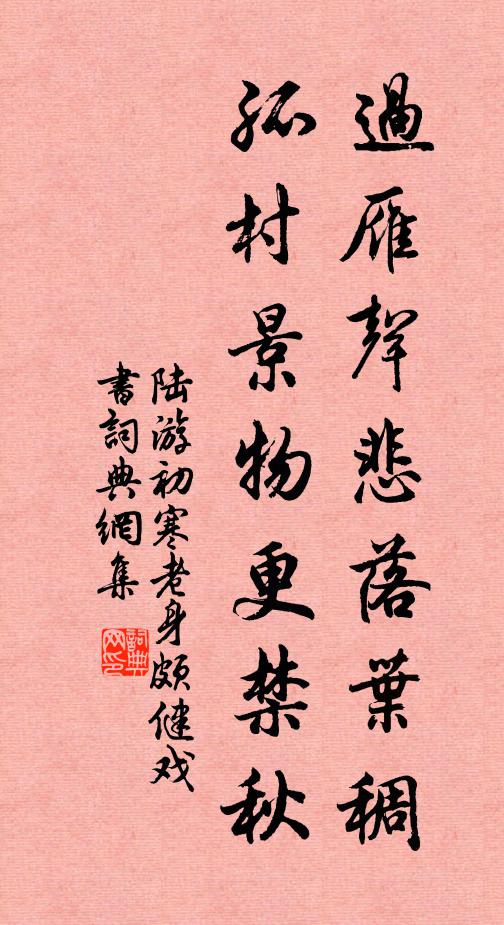 過雁聲悲落葉稠
孤村景物更禁秋
陸游初寒老身頗健戏
書詞典網集
詞典网印